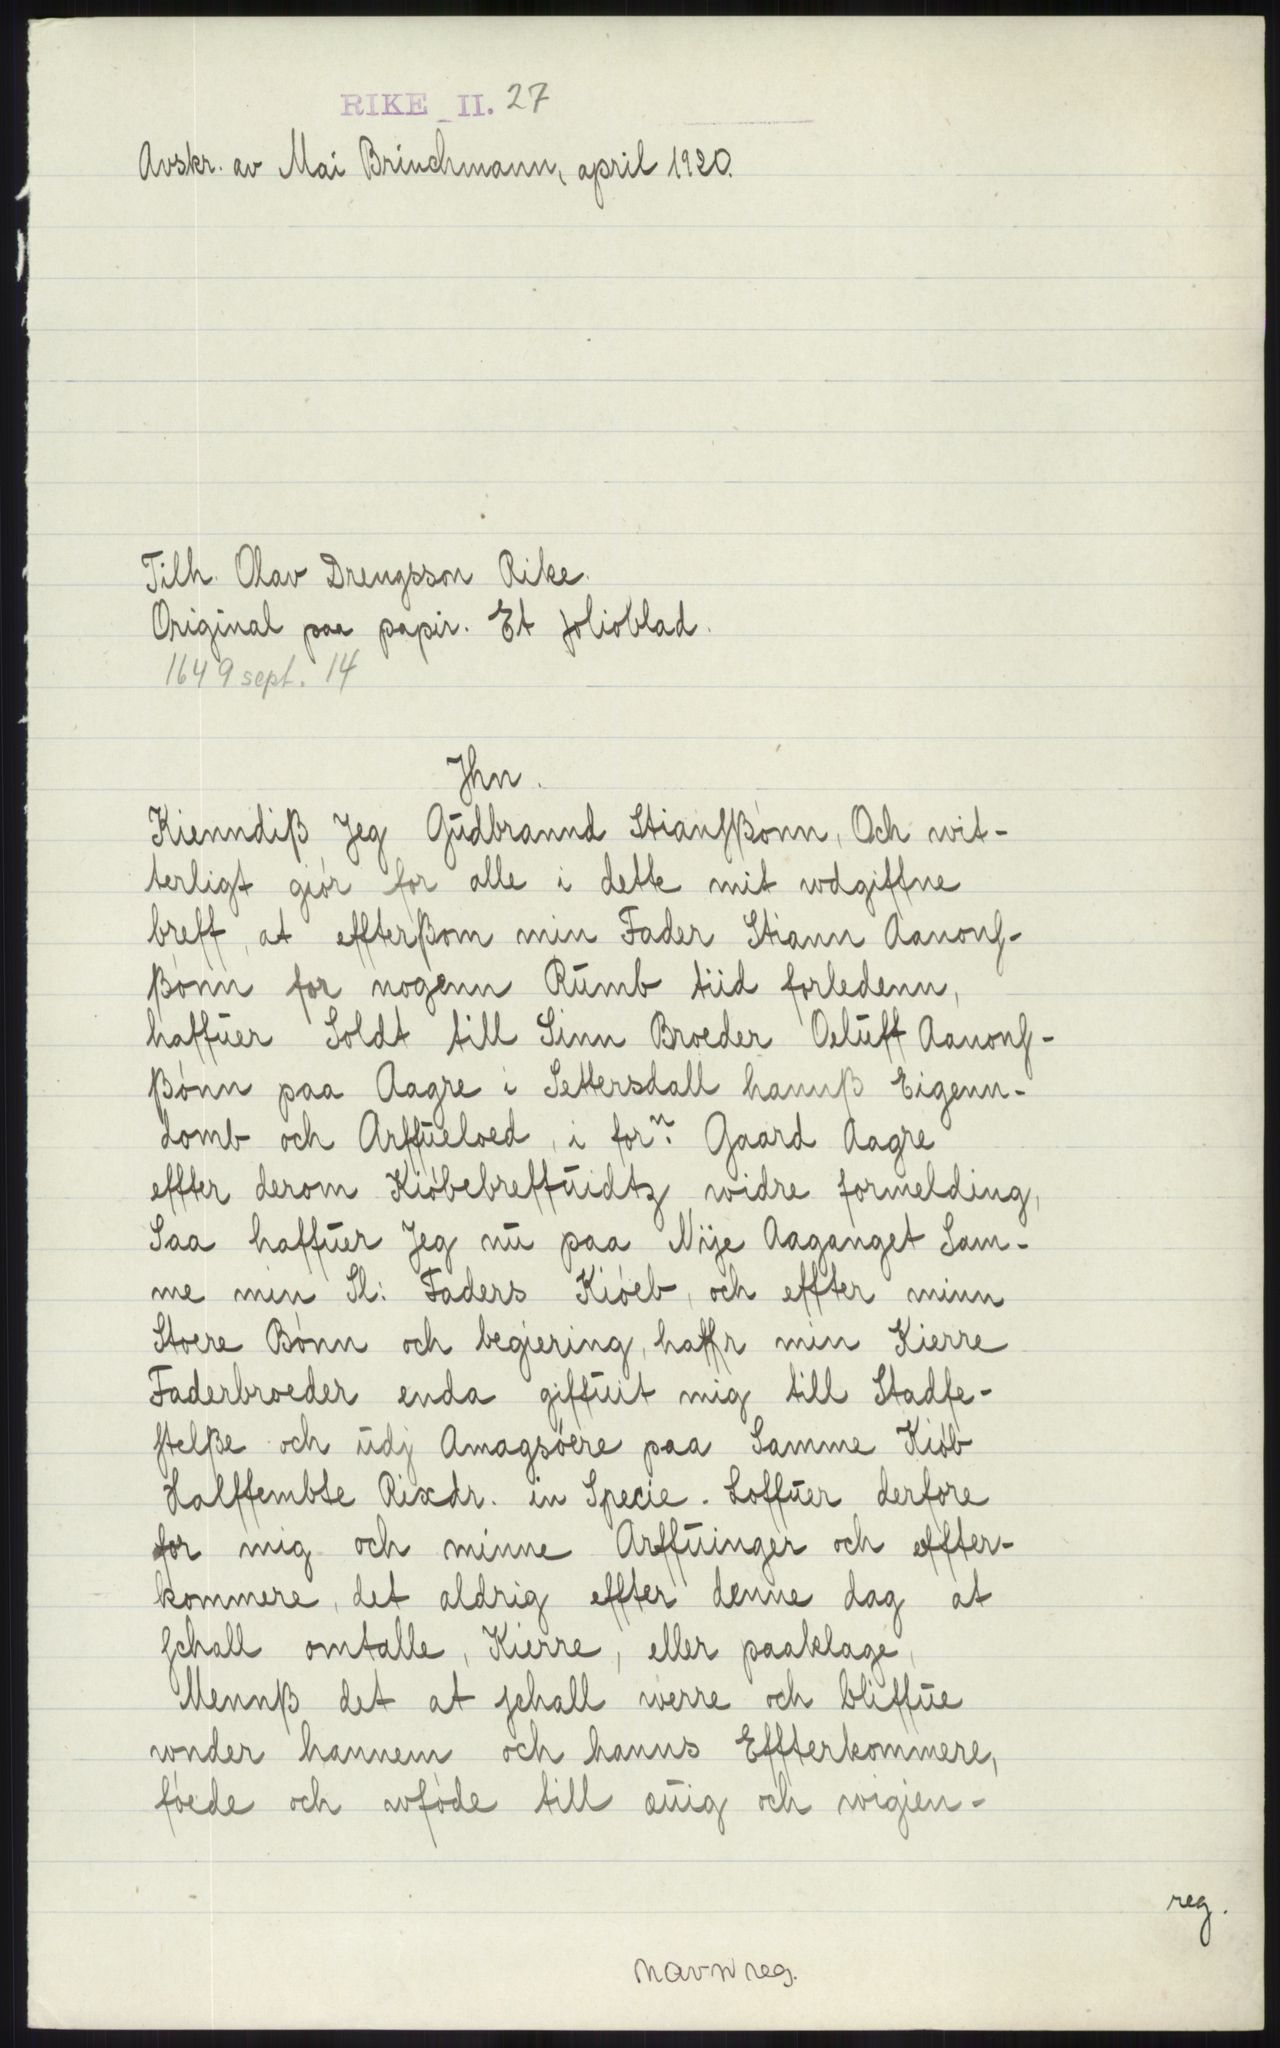 RIKE II. 27
Avskr. av Mai Brinchmann, april 1920.
Tilh. Olav Drengsson Rike.
Original paa papir. Et folioblad.
1649 sept. 14
Jhn.
Kienndiß Jeg Gudbrannd Stiansßønn, Och wit-
terligt giør for alle i dette mit wdgiffne
breff, at effterßom min Fader Stiann Aanons-
ßønn for nogenn Rumb tiid forledenn,
haffuer Soldt till Sinn Broeder Oeluff Aanons-
ßønn paa Aagre i Settersdall hannß Eigenn-
domb och Arffueloed, i forn: Gaard Aagre
effter derom Kiøbebreffuidtz widre formelding,
Saa haffuer Jeg nu paa Nije Aaganget Sam-
me min Sl: Faders Kiøeb, och effter minn
Stoere Bønn och begiering, haffr min Kierre
Faderbroeder enda giffuit mig till Stadfe-
stelße och udj Amagsøere paa Samme Kiøb
Halffembte Rixdr. in Specie. Loffuer derfore
for mig och minne Arffuinger och effter-
kommere, det aldrig effter denne dag at
schall omtalle, Kierre, eller paaklage,
Mennß det at schall werre och bliffue
wnder hannem och hanns Effterkommere,
føede och wføde till æuig och wigien-
reg.
navnreg.